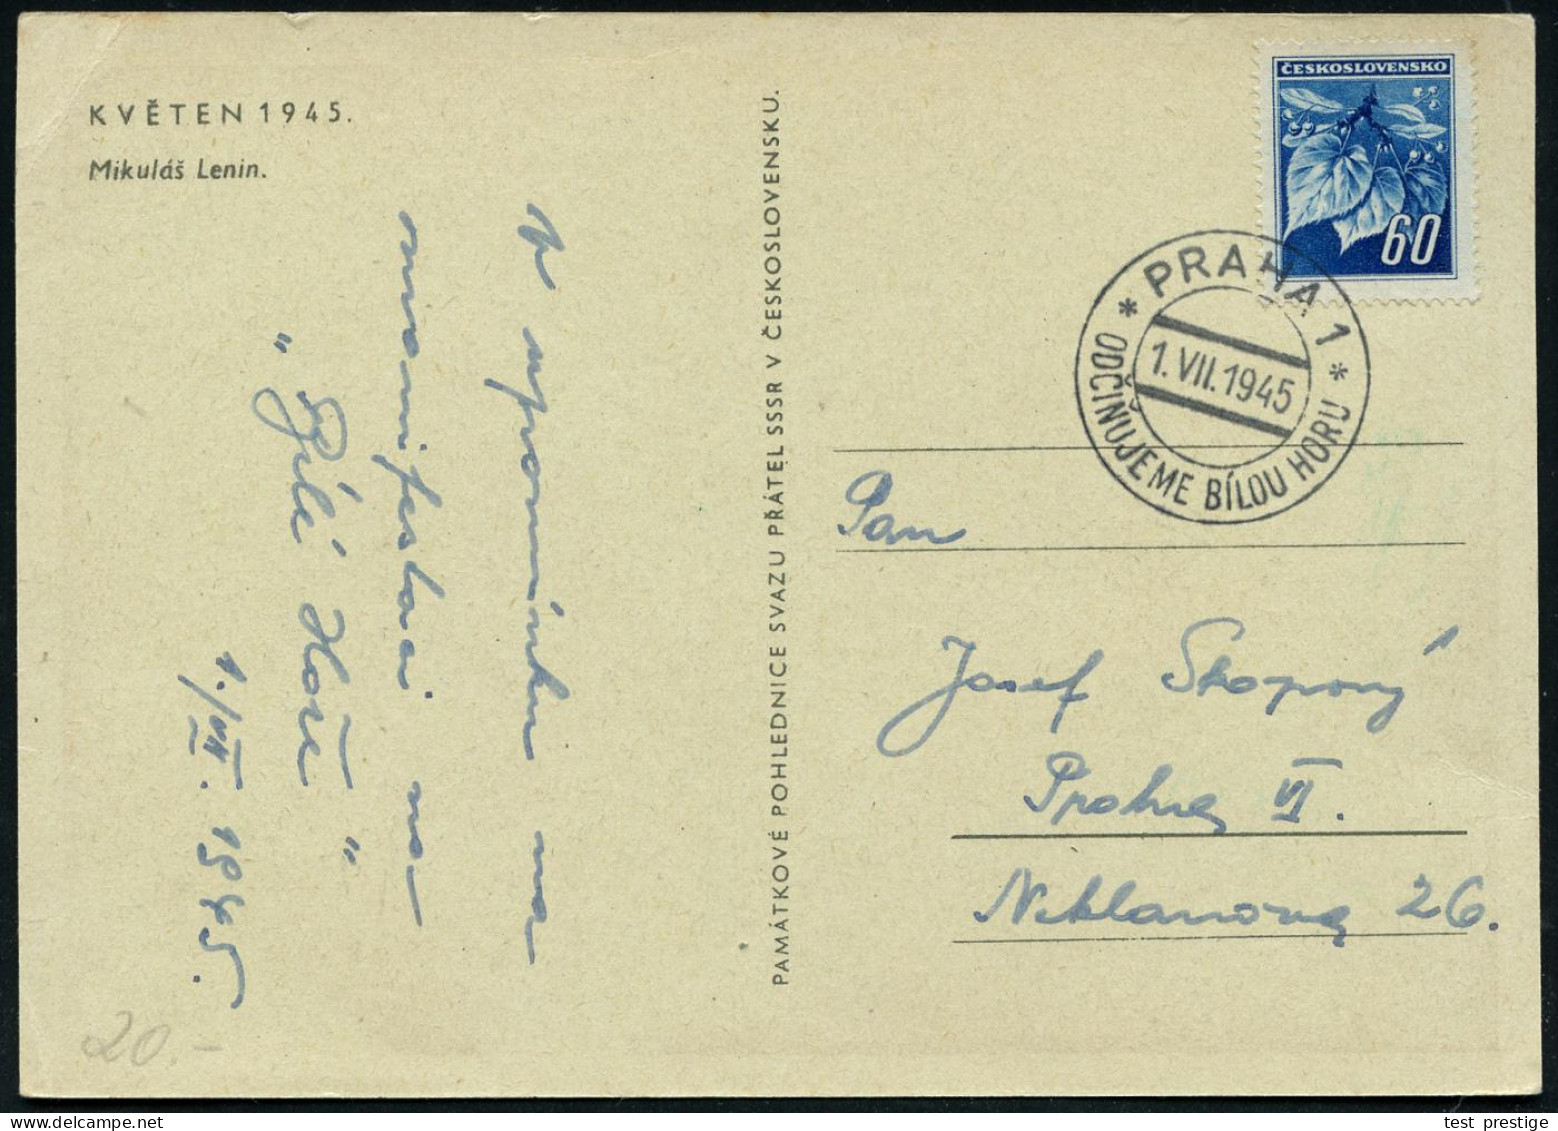 KVĚTEN 1945.
Mikuláš Lenin.
K upomínku na
manifestaci na
"Bílé Hoře"
1./VII. 1945.
20.-
PAMÁTKOVÉ POHLEDNICE SVAZU PŘÁTEL SSSR V ČESKOSLOVENSKU.
ČESKOSLOVENSKO
60
* PRAHA 1 *
1. VII. 1945
ODČIŇUJEME BÍLOU HORU
Pan
Josef Skopový
Praha VI.
Neklanova 26.
test prestige